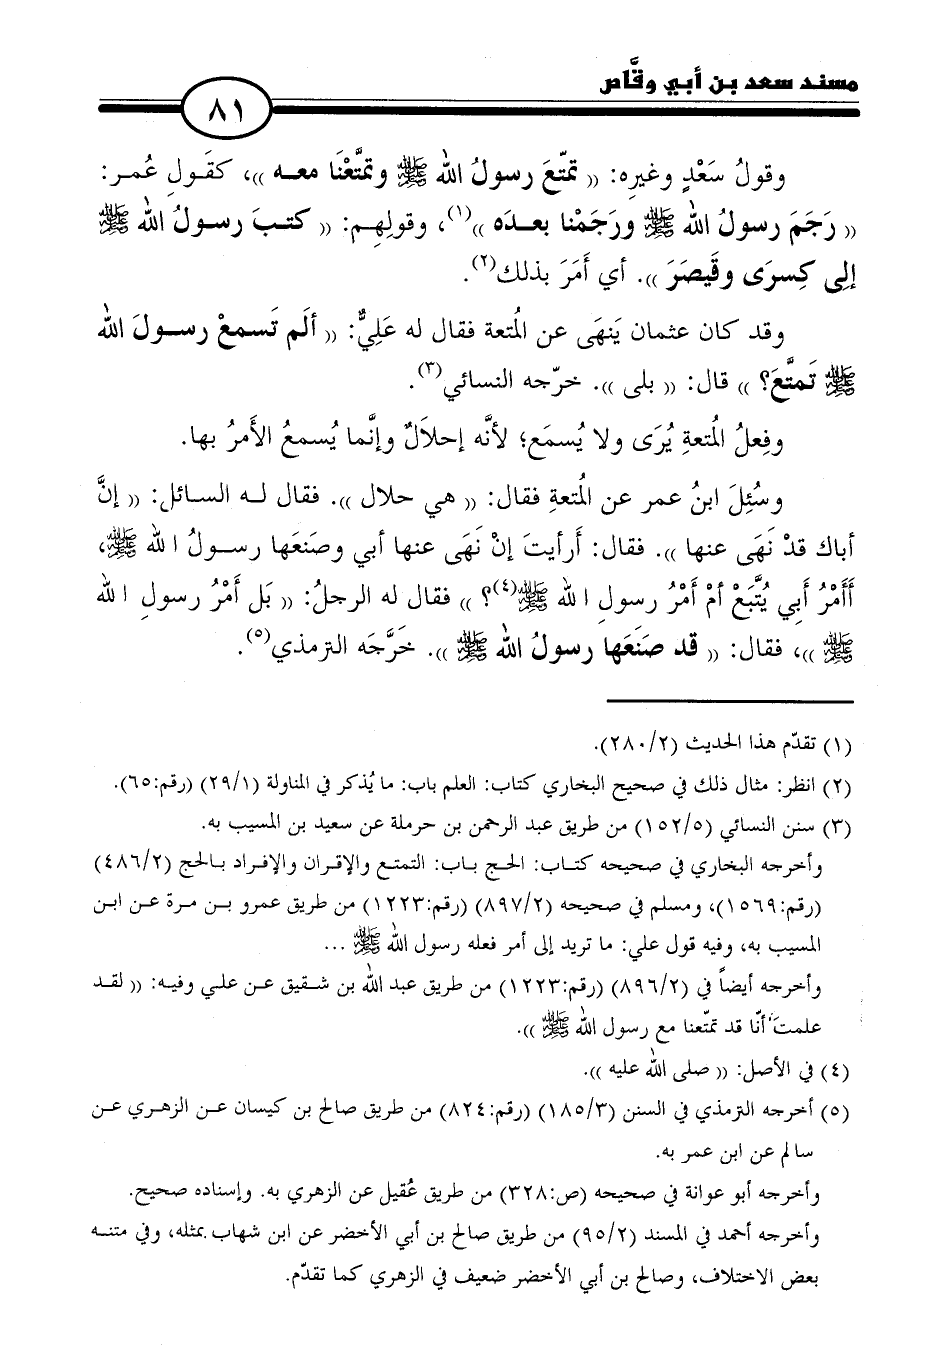 مسند سعد بن أبي وقَّاص
٨١
وقولُ سَعْدٍ وغيرِه: (( تمتّعَ رسولُ الله ﷺ وتمتَّعْنَا معـه ))، كقَـولِ عُمـر:
(( رَجَمَ رسولُ الله ﷺ ورَجَمْنا بعدَه ))(١)، وقولِهِم: (( كتـبَ رسـولُ الله ﷺ
إلى كِسرَى وقَيصَرَ )). أي أَمَرَ بذلك(٢).
وقد كان عثمان يَنهَى عن المُتعة فقال له عَلِيٌّ: (( ألَم تَسمعْ رسـولَ الله
ﷺ تَمتَّعَ؟ )) قال: (( بلى )). خرّجه النسائي(٣).
وفِعلُ المُتعةِ يُرَى ولا يُسمَع؛ لأنَّه إحلاَلٌ وإنَّما يُسمعُ الأَمرُ بها.
وسُئِلَ ابنُ عمر عن المُتعةِ فقال: (( هي حلال )). فقال لـه السـائل: (( إنَّ
أباك قدْ نَهَى عنها )). فقال: أَرأيتَ إنْ نَهَى عنها أبي وصَنَعَها رسـولُ الله ﷺ،
أَأَمْرُ أَبِي يُتَّبَعْ أمْ أَمْرُ رسولِ الله ﷺ(٤)؟ )) فقال له الرجلُ: (( بَل أَمْرُ رسولِ الله
ﷺ ))، فقال: (( قد صَنَعَها رسولُ الله ﷺ )). خَرَّجَه الترمذي(٥).
(١) تقدّم هذا الحديث (٢٨٠/٢).
(٢) انظر: مثال ذلك في صحيح البخاري كتاب: العلم باب: ما يُذكر في المناولة (٢٩/١) (رقم:٦٥).
(٣) سنن النسائي (١٥٢/٥) من طريق عبد الرحمن بن حرملة عن سعيد بن المسيب به.
وأخرجه البخاري في صحيحه كتـاب: الحـج بـاب: التمتـع والإقـران والإفـراد بـالحج (٤٨٦/٢)
(رقم:١٥٦٩)، ومسلم في صحيحه (٨٩٧/٢) (رقم:١٢٢٣) من طريق عمرو بـن مـرة عـن ابـن
المسيب به، وفيه قول علي: ما تريد إلى أمر فعله رسول الله ﷺ ...
وأخرجه أيضاً في (٨٩٦/٢) (رقم:١٢٢٣) من طريق عبد الله بن شـقيق عـن علـي وفيـه: (( لقـد
علمتَ أنّا قد تمتّعنا مع رسول الله ﷺ )).
(٤) في الأصل: (( صلى الله عليه )).
(٥) أخرجه الترمذي في السنن (١٨٥/٣) (رقم:٨٢٤) من طريق صالح بن كيسان عـن الزهـري عـن
سالم عن ابن عمر به.
وأخرجه أبو عوانة في صحيحه (ص:٣٢٨) من طريق عُقيل عن الزهري به. وإسناده صحيح.
وأخرجه أحمد في المسند (٩٥/٢) من طريق صالح بن أبي الأخضر عن ابن شهاب بمثله، وفي متنـه
بعض الاختلاف، وصالح بن أبي الأخضر ضعيف في الزهري كما تقدّم.